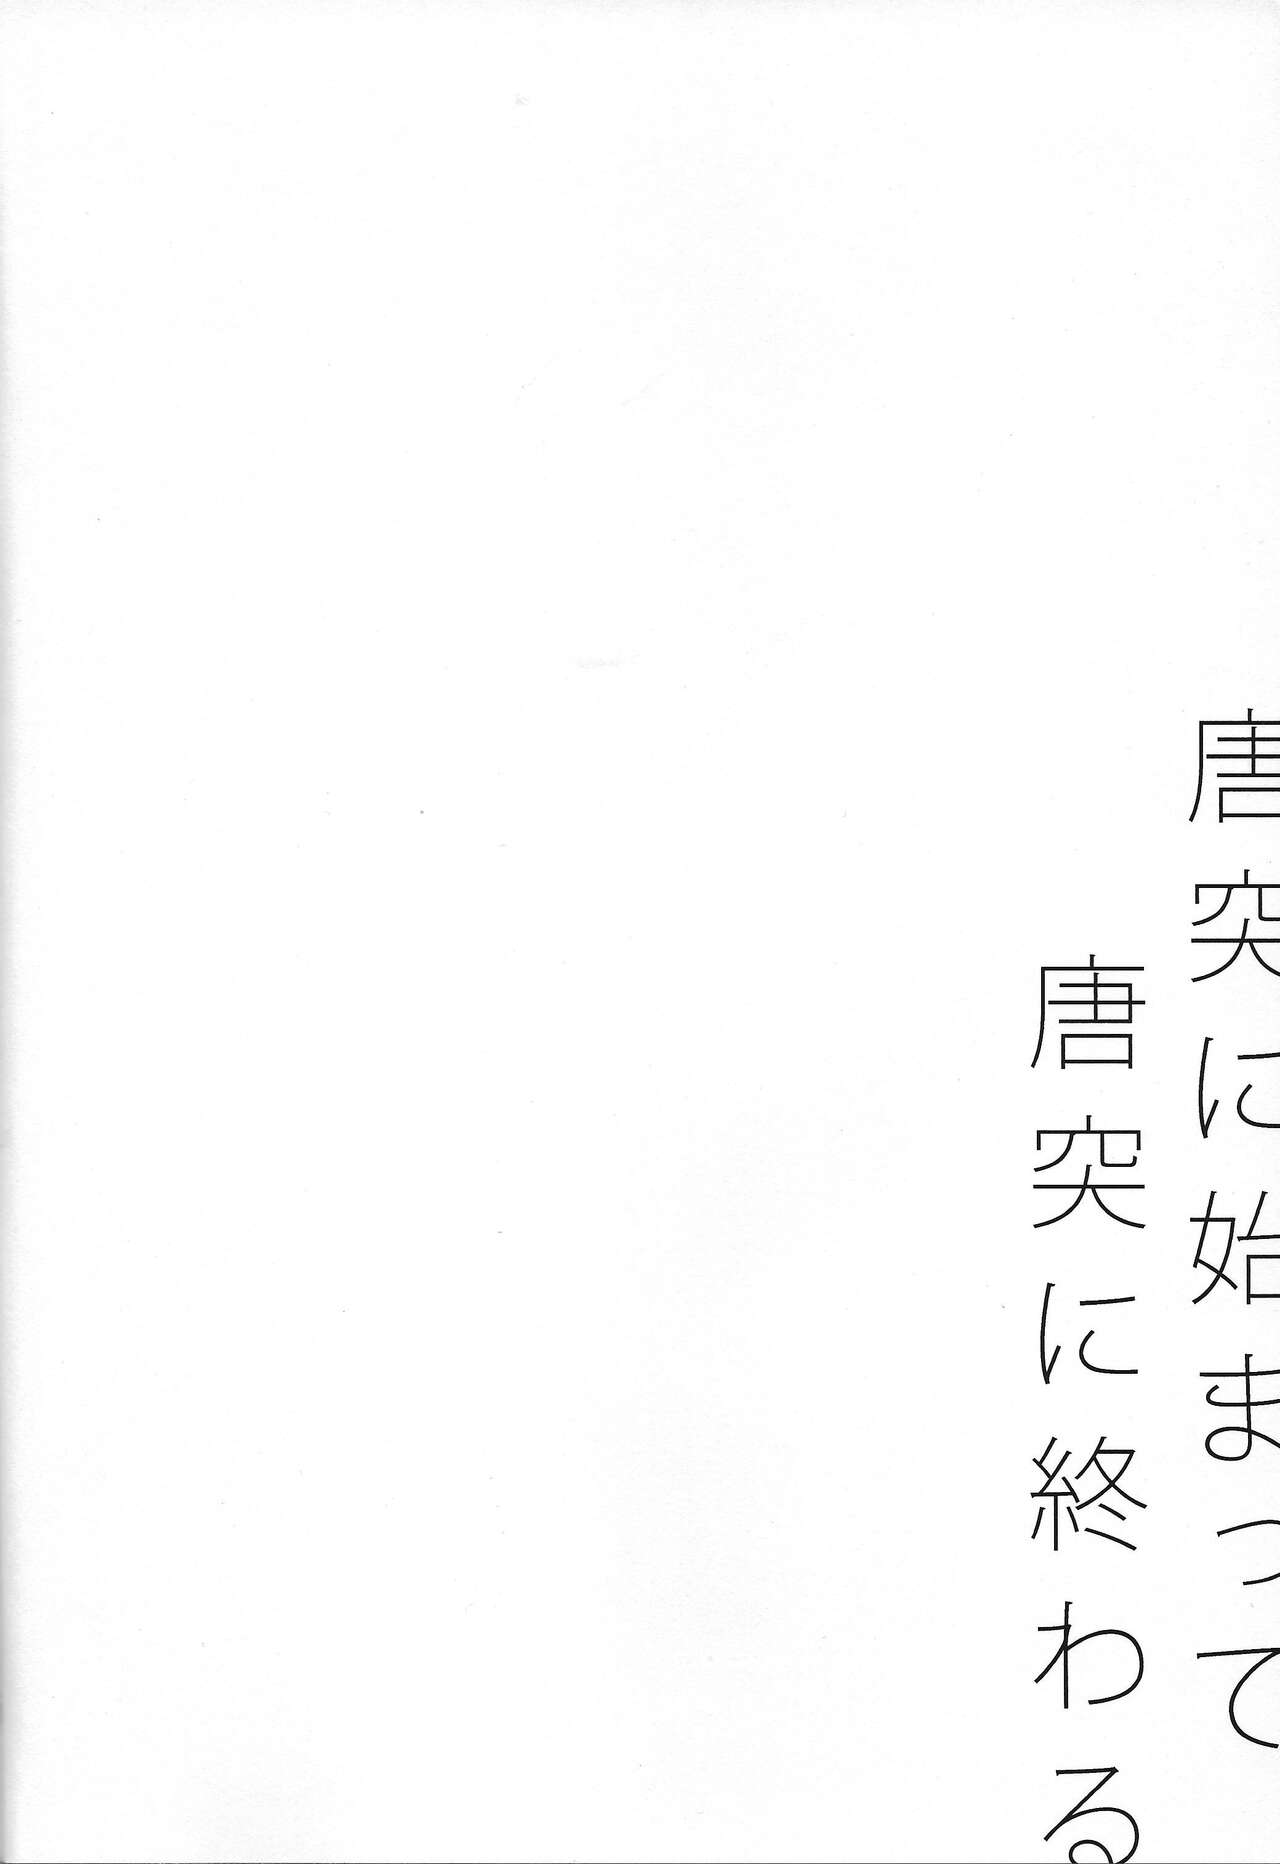 唐突に始まって
唐突に終わる